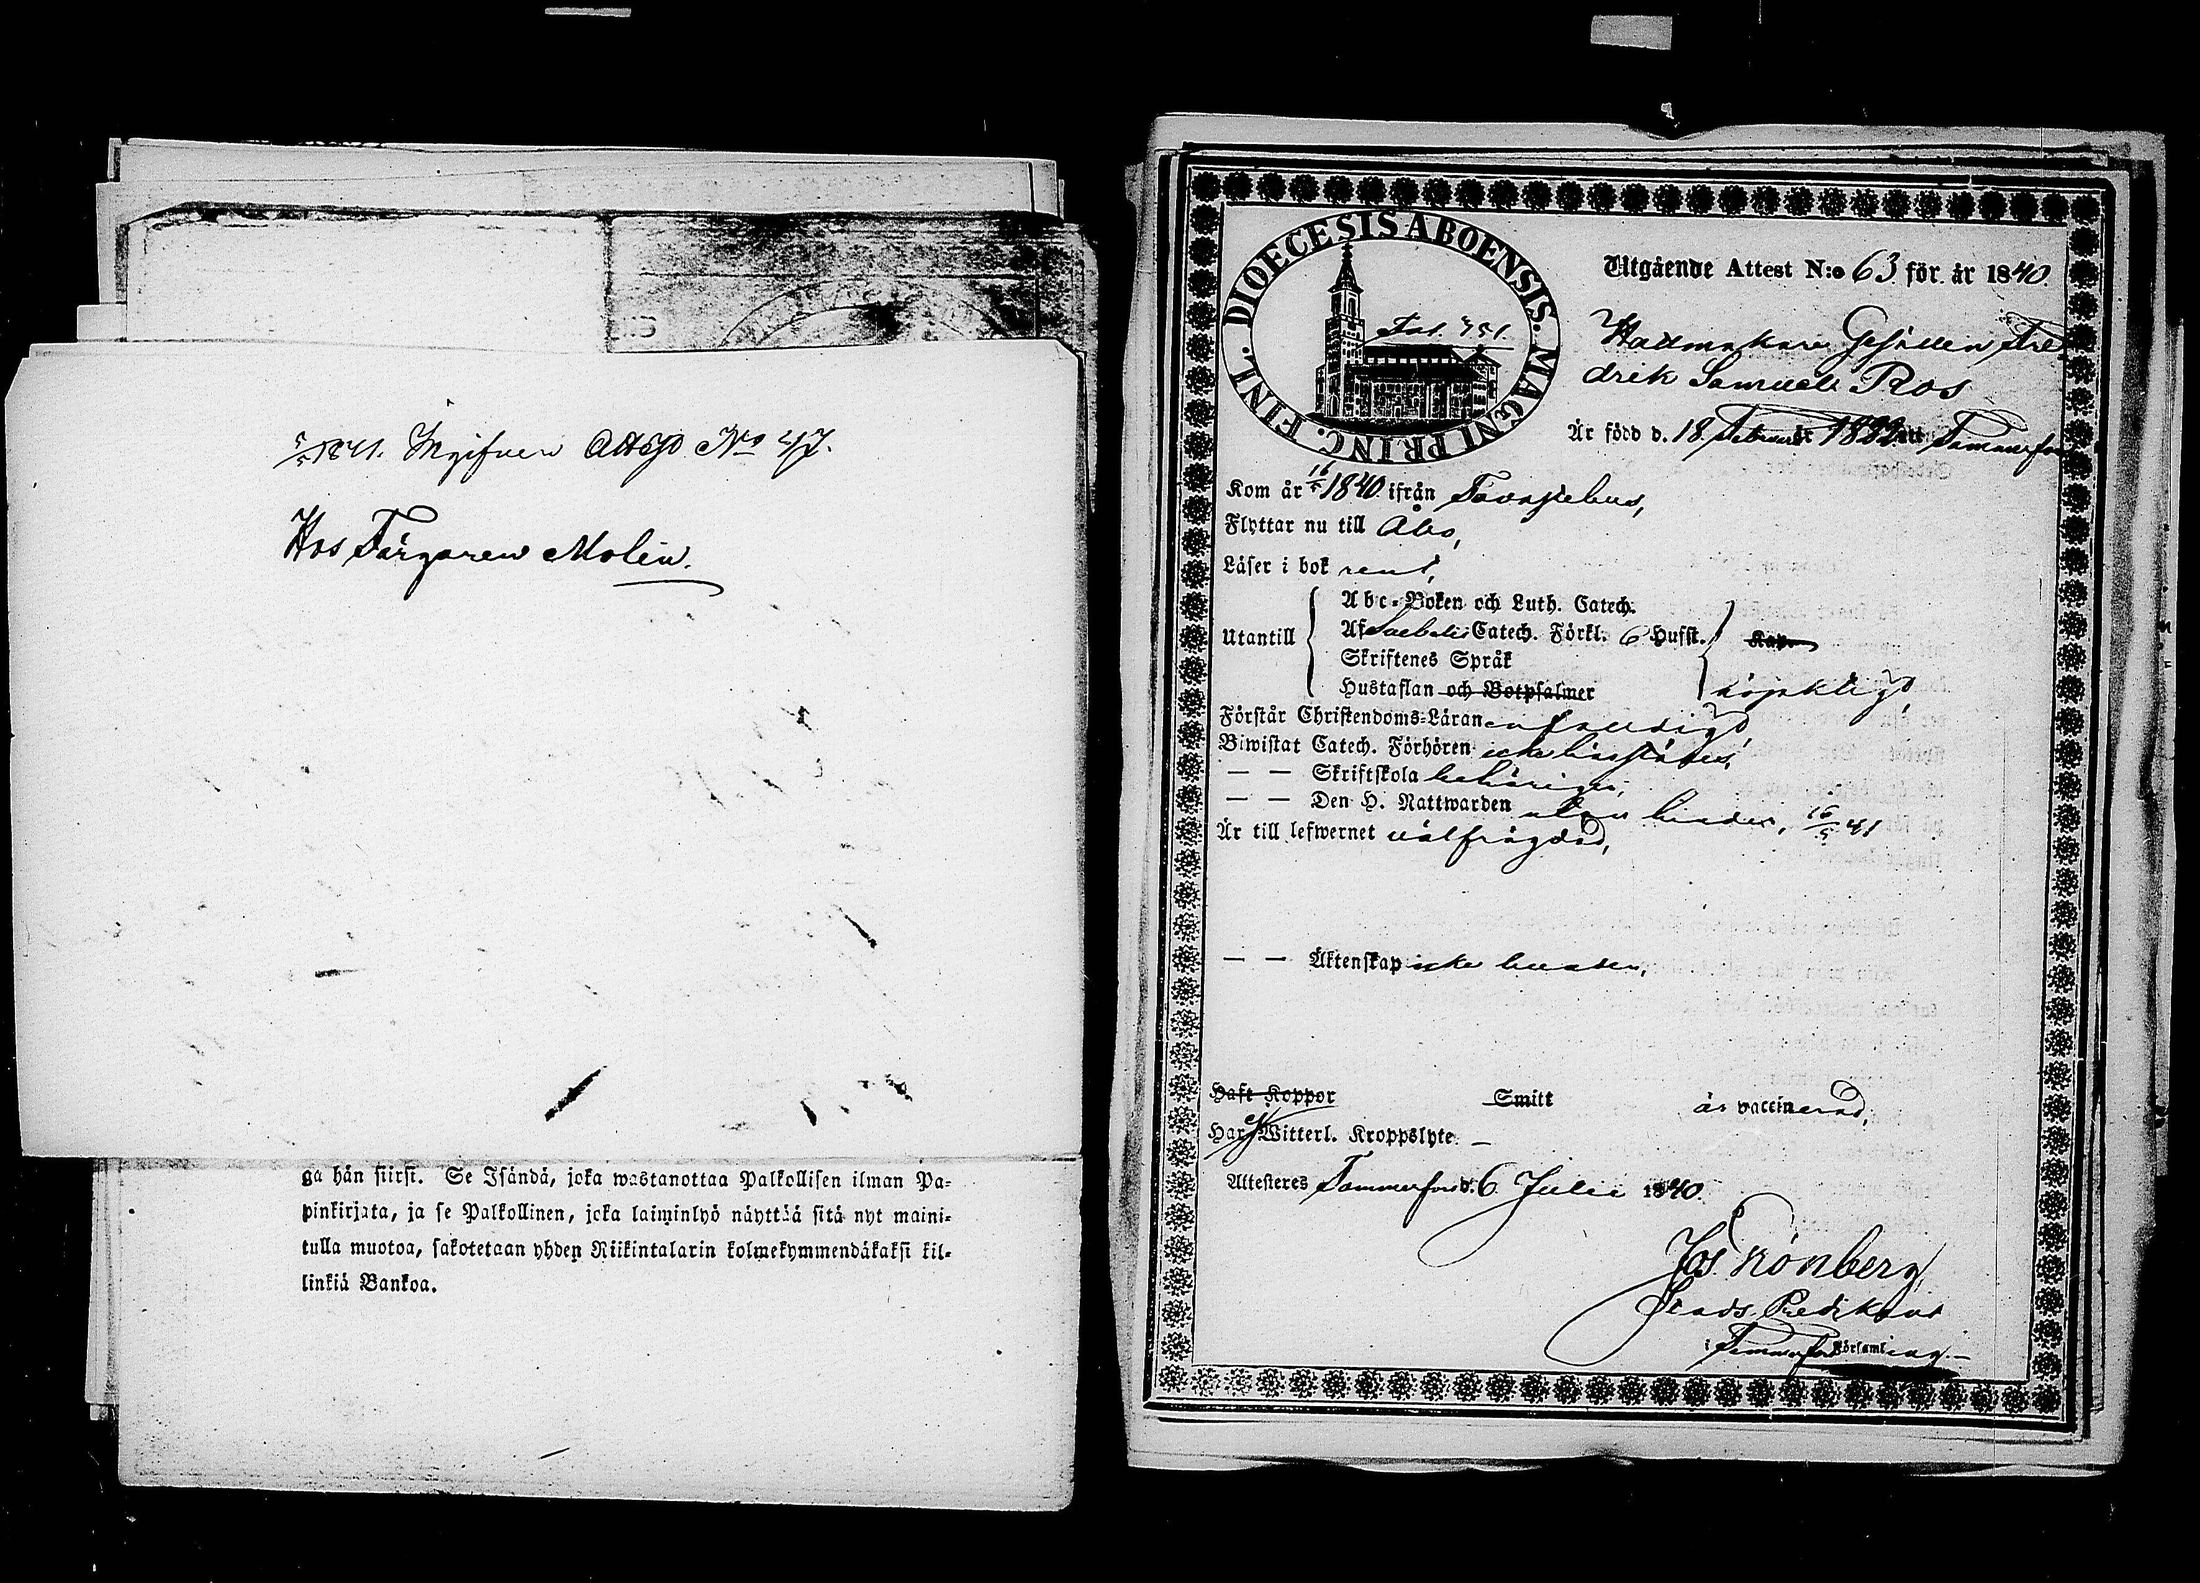 5/5 1841. Ingifven Attest No 47.
Hos Färgaren Molin.
ga hän siirsi. Se Isändä, joka wastanottaa Palkollisen ilman Pa-
pinkirjata, ja se Palkollinen, joka laiminlyö näyttää sitä nyt maini-
tulla muotoa, sakotetaan yhden Riikintalarin kolmekymmendäkaksi kil-
linkiä Bankoa.
DIOECESIS ABOENSIS. MAGNI PRINC. FINL.
Utgående Attest N:o 63 för år 1840.
Hattmakare Gesällen Fre
drik Samuel Ros
Är född d. 18 Februari i Tammerfors
Kom år 1840 ifrån Tavastehus,
Flyttar nu till Åbo,
Läser i bok rent,
Abc-Boken och Luth. Catech.
Utantill Af Catech. Förkl. 6 Hufst. Kap.
Skriftenes Språk
Hustaflan och Botpsalmer
Förstår Christendoms-Läran
Biwistat Catech. Förhören
— — Skriftskola behörigen,
— — Den H. Nattwarden utan hinder, 16/5 41
Är till lefwernet välfrägdad,
— — Äktenskap icke bunden,
Haft Koppor Smitt är vaccinerad,
Har Witterl. Kroppslyte —
Attesteres Tammerfors d. 6 Julii 1840.
Jos Grönberg
Stads Predikant
i Tammerfors Församling—